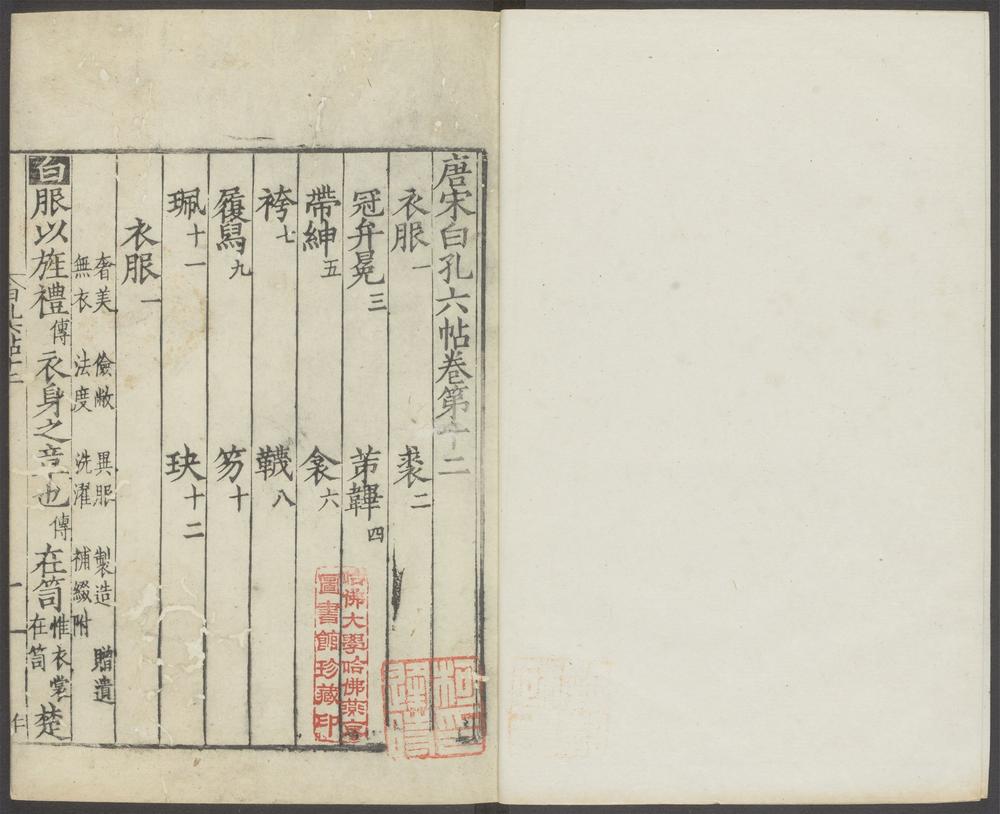 唐宋白孔六帖卷第十二
衣服一 裘二
冠弁冕三 芾韠四
帶紳五 衾六
袴七 韈八
履舄九 笏十
珮十一 玦十二
衣服一
奢美 儉敝 異服 製造 贈遺
無衣 法度 洗濯 補綴附
白服以旌禮傳衣身之章也傳在笥惟衣裳在笥楚
白孔六帖十二
一
哈佛大學哈佛燕京
圖書館珍藏印